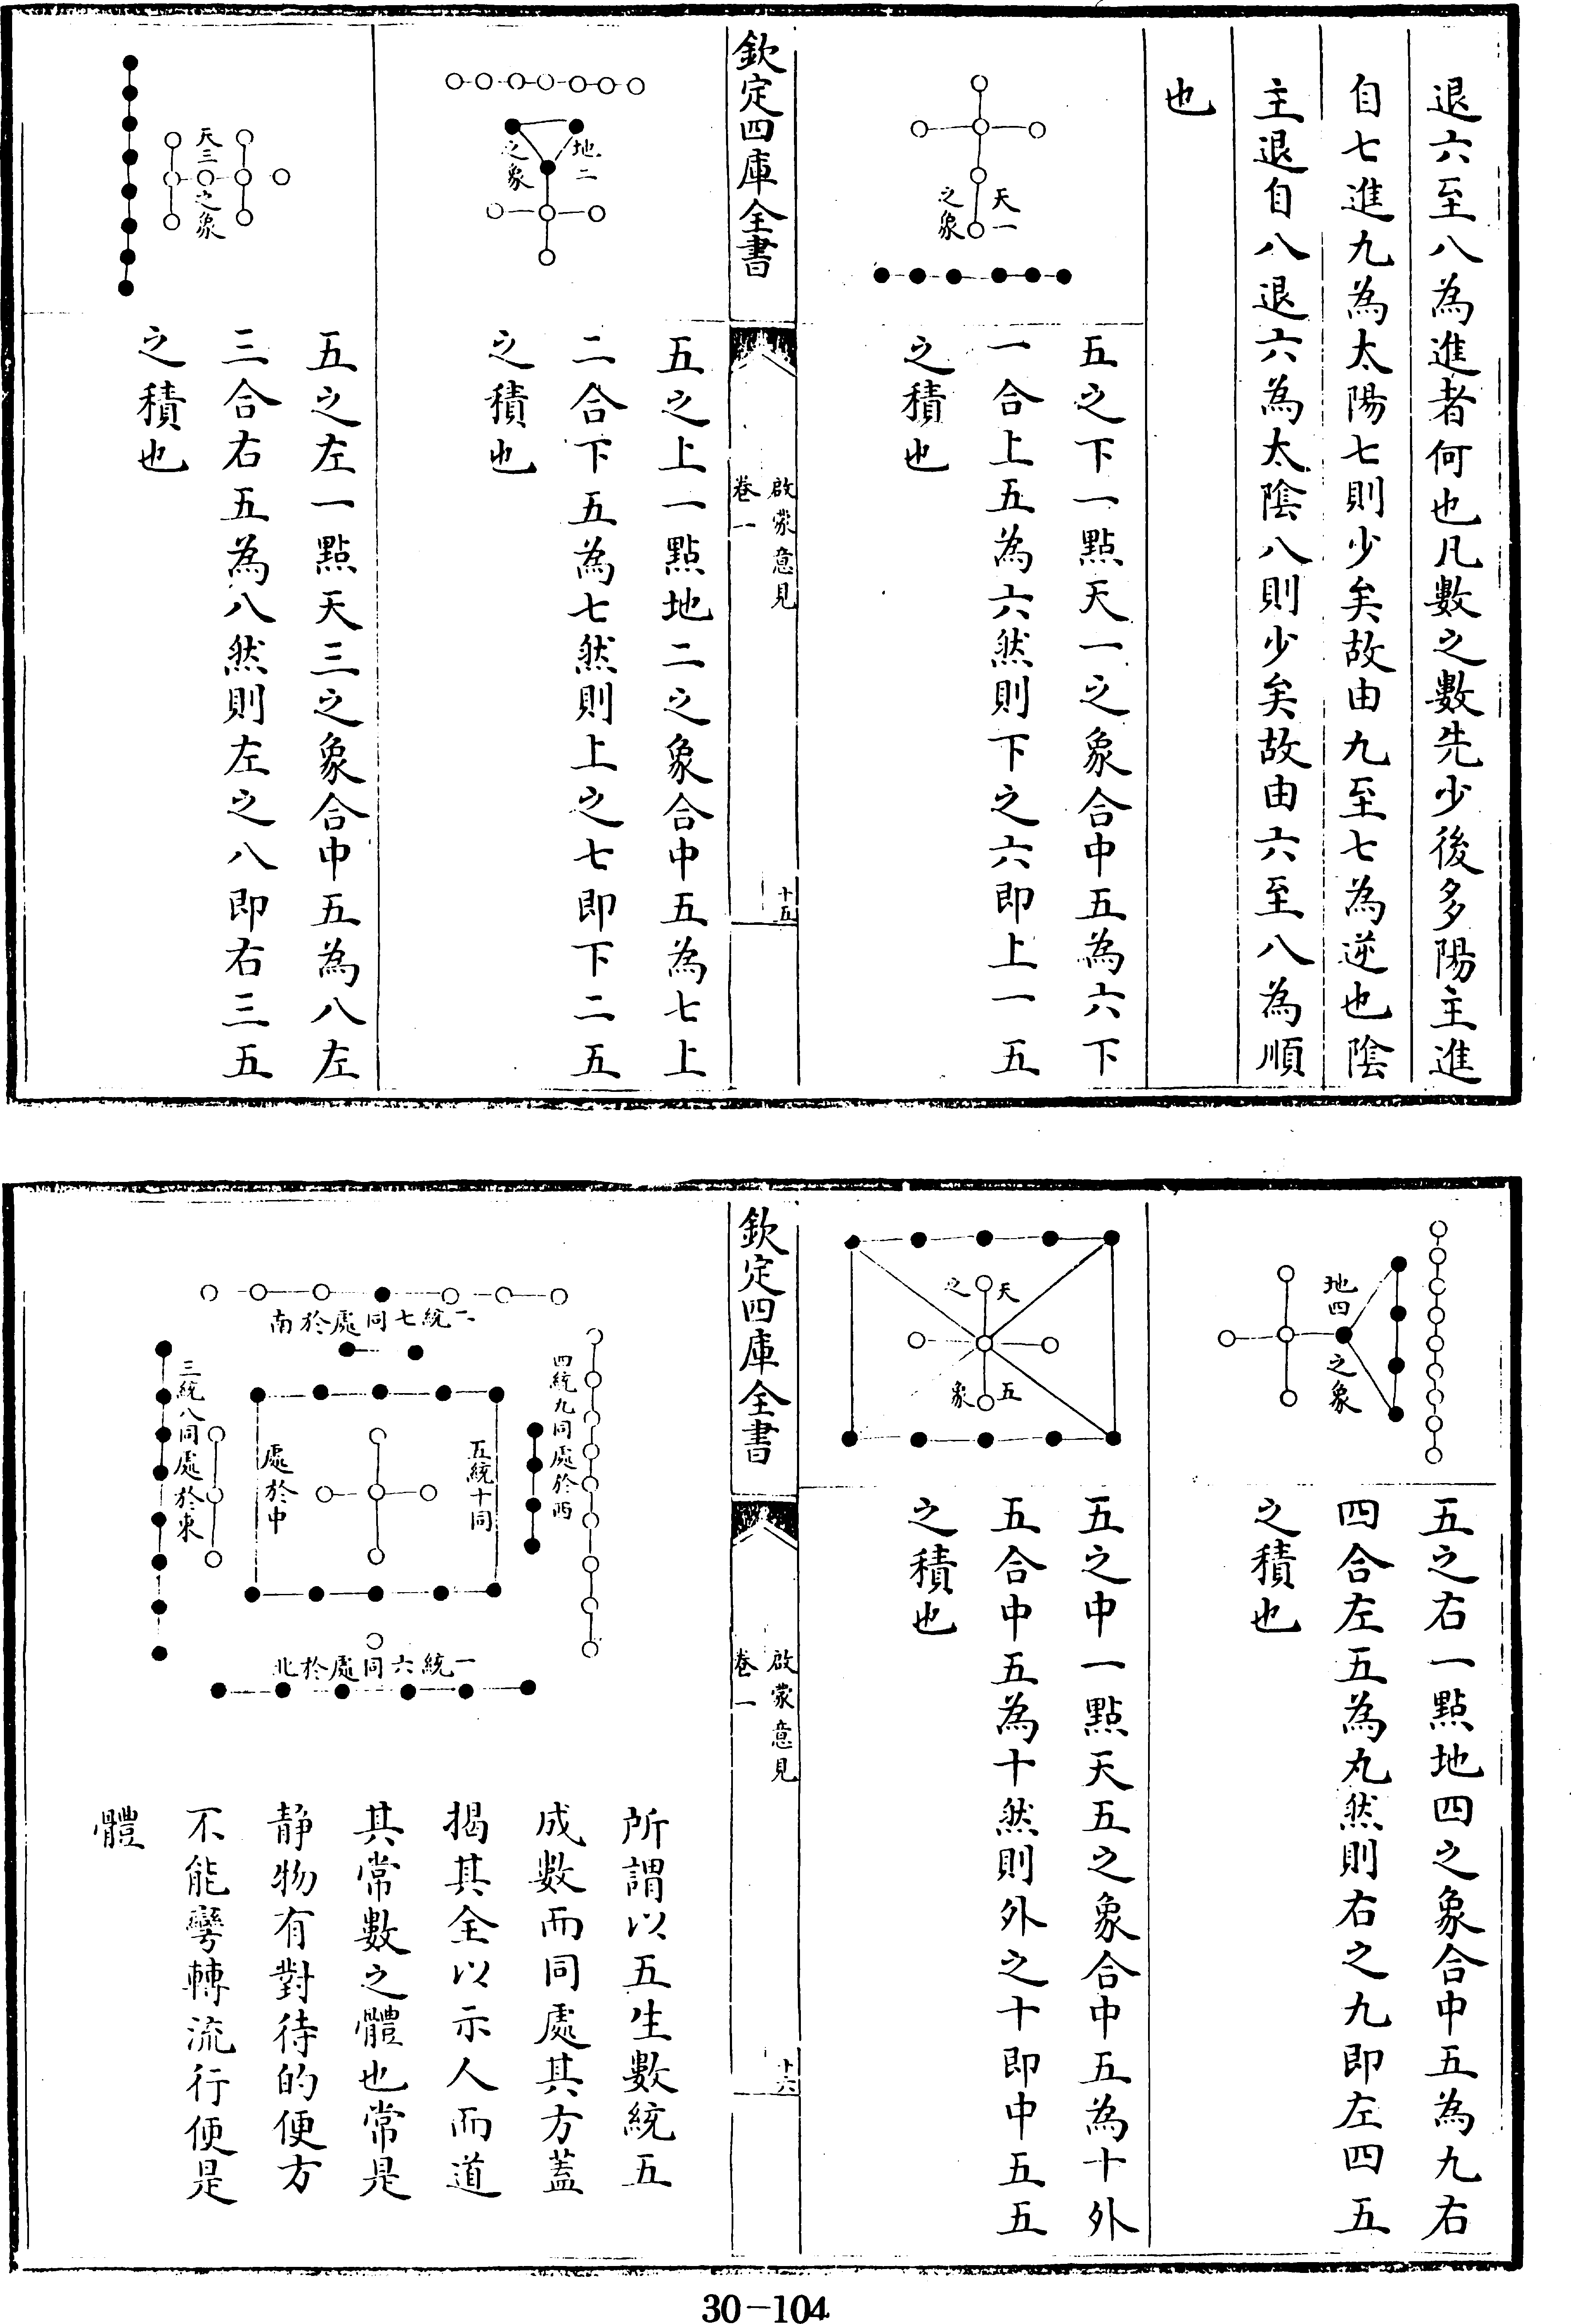 退六至八為進者何也凡數之數先少後多陽主進
自七進九為太陽七則少矣故由九至七為逆也陰
主退自八退六為太陰八則少矣故由六至八為順
也
天一
之象
五之下一點天一之象合中五為六下
一合上五為六然則下之六即上一五
之積也
欽定四庫全書
啟蒙意見
卷一
十五
地二
之象
五之上一點地二之象合中五為七上
二合下五為七然則上之七即下二五
之積也
天三之象
五之左一點天三之象合中五為八左
三合右五為八然則左之八即右三五
之積也
地四之象
五之右一點地四之象合中五為九右
四合左五為九然則右之九即左四五
之積也
天五
之象
五之中一點天五之象合中五為十外
五合中五為十然則外之十即中五五
之積也
欽定四庫全書
啟蒙意見
卷一
十六
二統七同處於南
四統九同處於西
五統十同
處於中
三統八同處於東
一統六同處於北
所謂以五生數統五
成數而同處其方蓋
揭其全以示人而道
其常數之體也常是
静物有對待的便方
不能彎轉流行便是
體
30-104